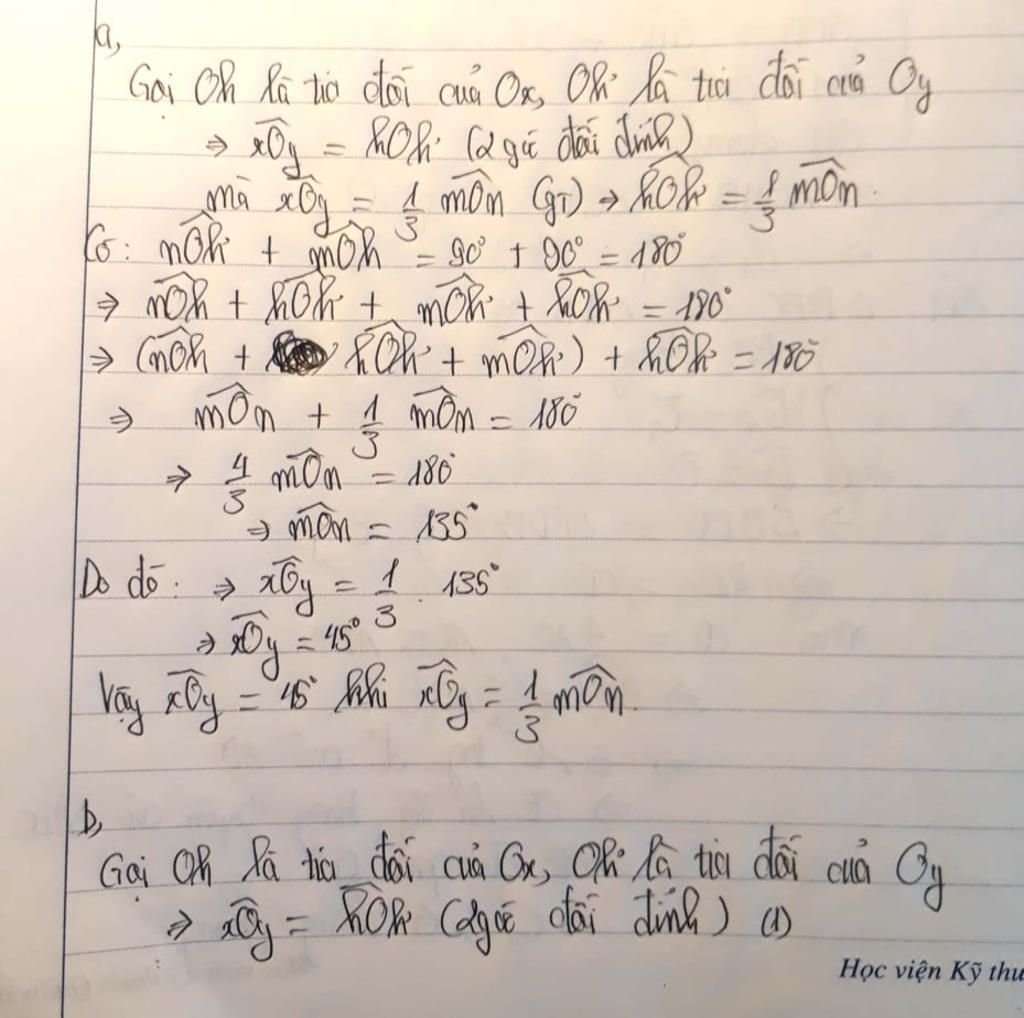 a,
Gọi Oh là tia đối của Ox, Ok là tia đối của Oy
⇒ xOy = hOk (2 góc đối đỉnh)
mà xOy = 1/3 mOn (gt) ⇒ hOk = 1/3 mOn.
Có: nOk + mOh = 90° + 90° = 180°
⇒ nOh + hOk + mOk + hOk = 180°
⇒ (nOh + hOk + mOk) + hOk = 180°
⇒ mOn + 1/3 mOn = 180°
⇒ 4/3 mOn = 180°
⇒ mOn = 135°
Do đó: ⇒ xOy = 1/3 . 135°
⇒ xOy = 45°
Vậy xOy = 45° khi xOy = 1/3 mOn.
b,
Gọi Oh là tia đối của Ox, Ok là tia đối của Oy
⇒ xOy = hOk (2 góc đối đỉnh) (1)
Học viện Kỹ thu